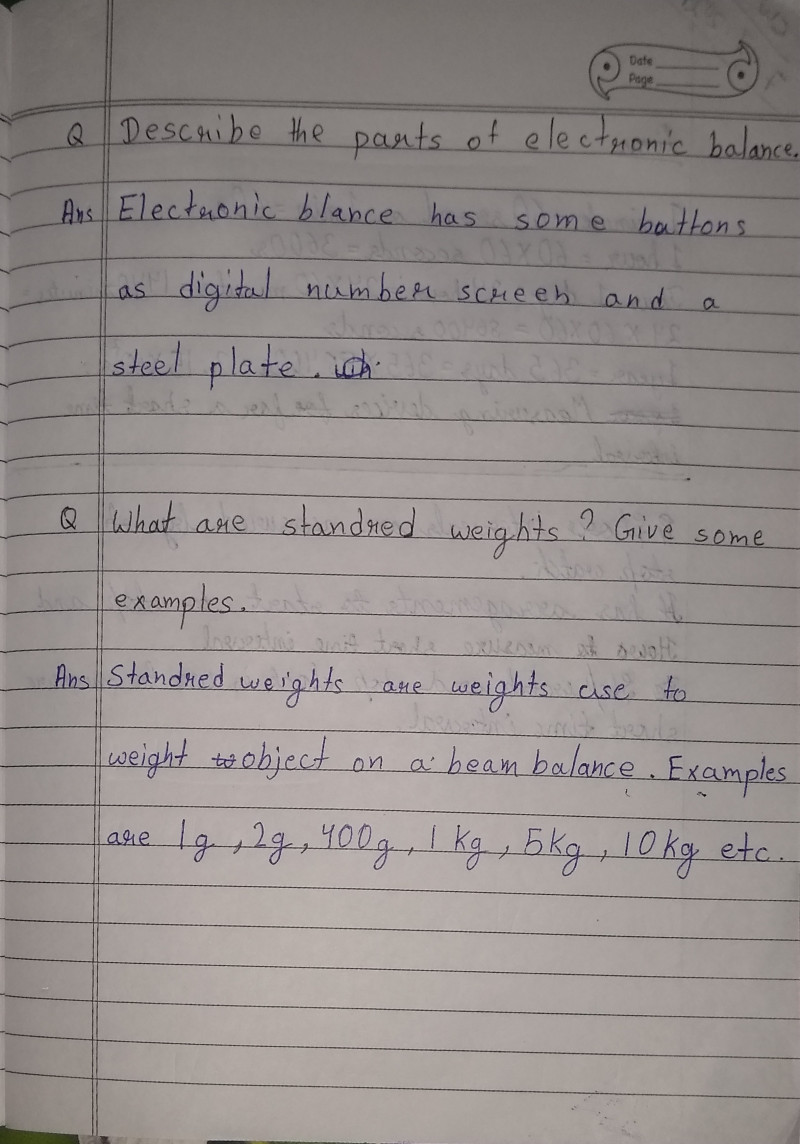 Date
Page
Q Describe the parts of electronic balance.
Ans Electronic blance has some buttons
as digital number screen and a
steel plate.
Q What are standred weights? Give some
examples.
Ans Standred weights are weights use to
weight object on a beam balance. Examples
are 1g, 2g, 400g, 1 kg, 5kg, 10kg etc.